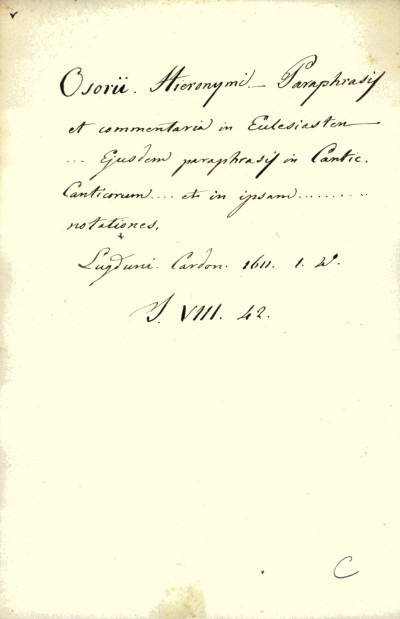 Osorii. Hieronymi.— Paraphrasis
et commentaria in Eclesiasten —
... Ejusdem paraphrasis in Cantic.
Canticorum.... et in ipsam..........
notationes,
Lugduni. Cardon. 1611. 1. 4°.
J. VIII. 42.
C